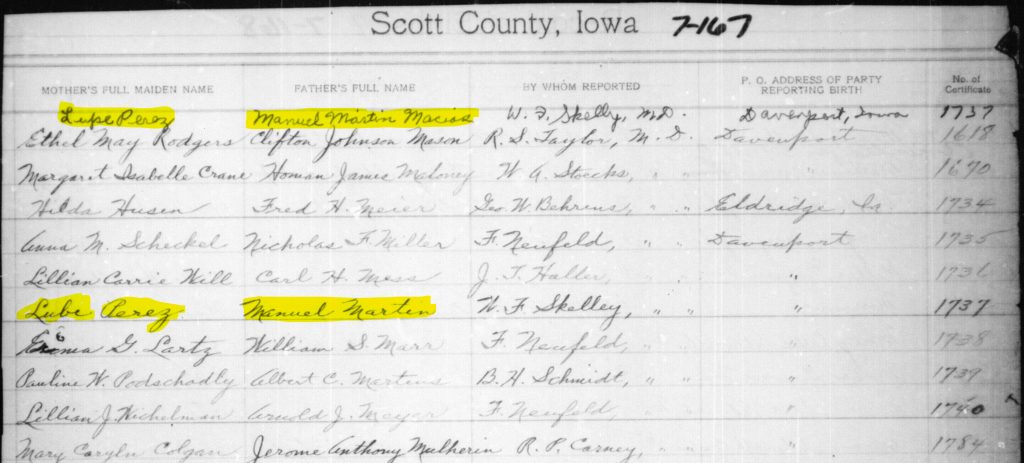 Scott County, Iowa 7-167
MOTHER'S FULL MAIDEN NAME FATHER'S FULL NAME BY WHOM REPORTED P. O. ADDRESS OF PARTY REPORTING BIRTH No. of Certificate
Lupe Perez Manuel Martin Macias W. F. Skelly, M.D. Davenport, Iowa 1737
Ethel May Rodgers Clifton Johnson Mason R. S. Taylor, M. D. Davenport 1618
Margaret Isabelle Crane Homan James Maloney W. A. Stoecks, " " " 1670
Hilda Husen Fred H. Meier Geo. W. Behrens, " " Eldridge, Ia. 1734
Anna M. Scheckel Nicholas F. Miller F. Neufeld, " " Davenport 1735
Lillian Carrie Will Carl H. Mess J. T. Haller, " 1736
Lube Perez Manuel Martin W. F. Skelley, " " " 1737
G. Lartz William S. Marr F. Neufeld, " " " 1738
Pauline W. Podschadly Albert C. Martens B. H. Schmidt, " " " 1739
Lillian J. Wichelman Arnold J. Meyer F. Neufeld, " " " 1740
Mary Caryln Colgan Jerome Anthony Mulherin R. P. Carney, " " " 1784